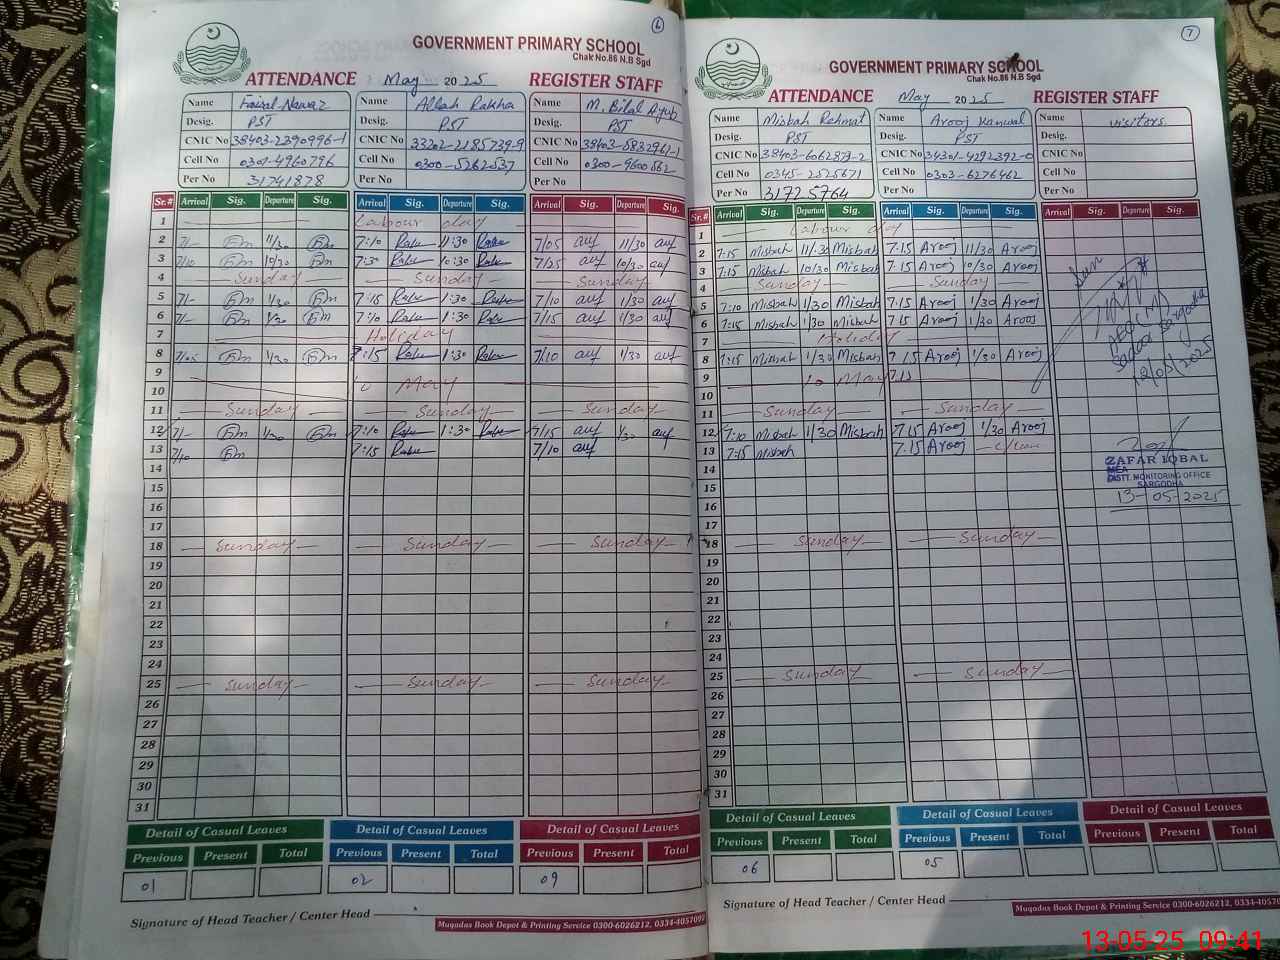 6
GOVERNMENT PRIMARY SCHOOL
Chak No.86 N.B Sgd
ATTENDANCE May 2025 REGISTER STAFF
Name Faisal Nawaz Name Allah Rakha Name M. Bilal Ayub
Desig. PST Desig. PST Desig. PST
CNIC No 38403-2390996-1 CNIC No 33202-2185739-9 CNIC No 38403-5832961-1
Cell No 0301-4960796 Cell No 0300-5262537 Cell No 0300-9600562
Per No 31741878 Per No Per No
Sr.# Arrival Sig. Departure Sig. Arrival Sig. Departure Sig. Arrival Sig. Departure Sig.
1 Labour day
2 7/- 11/30 7:10 11:30 7/05 11/30
3 7/10 10/30 7:30 10:30 7/25 10/30
4 Sunday Sunday Sunday
5 7/- 1/30 7:15 1:30 7/10 1/30
6 7/- 1/30 7:10 1:30 7/15 1/30
7 Holiday
8 7/05 1/30 7:15 1:30 7/10 1/30
9
10 May
11 Sunday Sunday Sunday
12 7/- 1/30 7:10 1:30 7/15 1/30
13 7/10 7:15 7/10
14
15
16
17
18 Sunday Sunday Sunday
19
20
21
22
23
24
25 Sunday Sunday Sunday
26
27
28
29
30
31
Detail of Casual Leaves Detail of Casual Leaves Detail of Casual Leaves
Previous Present Total Previous Present Total Previous Present Total
01 02 09
Signature of Head Teacher / Center Head
Muqadas Book Depot & Printing Service 0300-6026212, 0334-4057099
7
GOVERNMENT PRIMARY SCHOOL
Chak No.86 N.B Sgd
ATTENDANCE May 2025 REGISTER STAFF
Name Misbah Rehmat Name Arooj Kanwal Name visitors
Desig. PST Desig. PST Desig.
CNIC No 38403-6062873-2 CNIC No 34301-4292392-0 CNIC No
Cell No 0345-2525671 Cell No 0303-6276462 Cell No
Per No 31725764 Per No Per No
Sr.# Arrival Sig. Departure Sig. Arrival Sig. Departure Sig. Arrival Sig. Departure Sig.
1 Labour day
2 7:15 Misbah 11/30 Misbah 7.15 Arooj 11/30 Arooj
3 7:15 Misbah 10/30 Misbah 7.15 Arooj 10/30 Arooj
4 Sunday Sunday
5 7:10 Misbah 1/30 Misbah 7.15 Arooj 1/30 Arooj
6 7:15 Misbah 1/30 Misbah 7.15 Arooj 1/30 Arooj
7 Holiday
8 7:15 Misbah 1/30 Misbah 7.15 Arooj 1/30 Arooj
9 10 May 7.15
10
11 Sunday Sunday
12 7:10 Misbah 1/30 Misbah 7.15 Arooj 1/30 Arooj
13 7:15 Misbah 7.15 Arooj
14
15
16
17
18 Sunday Sunday
19
20
21
22
23
24
25 Sunday Sunday
26
27
28
29
30
31
12/05/2025
ZAFAR IQBAL
MEA
DISTT. MONITORING OFFICE
SARGODHA
13-05-2025
Detail of Casual Leaves Detail of Casual Leaves Detail of Casual Leaves
Previous Present Total Previous Present Total Previous Present Total
06 05
Signature of Head Teacher / Center Head
Muqadas Book Depot & Printing Service 0300-6026212, 0334-405
13-05-25 09:41